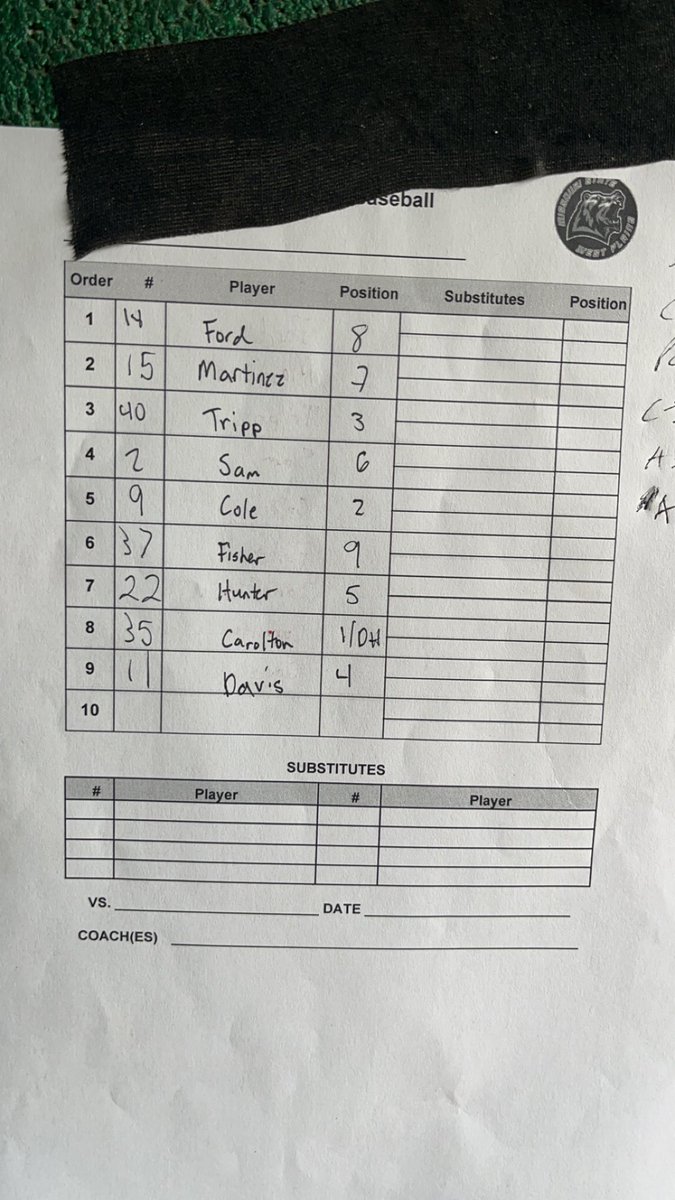 MISSOURI STATE
WEST PLAINS
Order # Player Position Substitutes Position
1 14 Ford 8
2 15 Martinez 7
3 40 Tripp 3
4 2 Sam 6
5 9 Cole 2
6 37 Fisher 9
7 22 Hunter 5
8 35 Carolton 1/DH
9 11 Davis 4
10
SUBSTITUTES
# Player # Player
VS. DATE
COACH(ES)